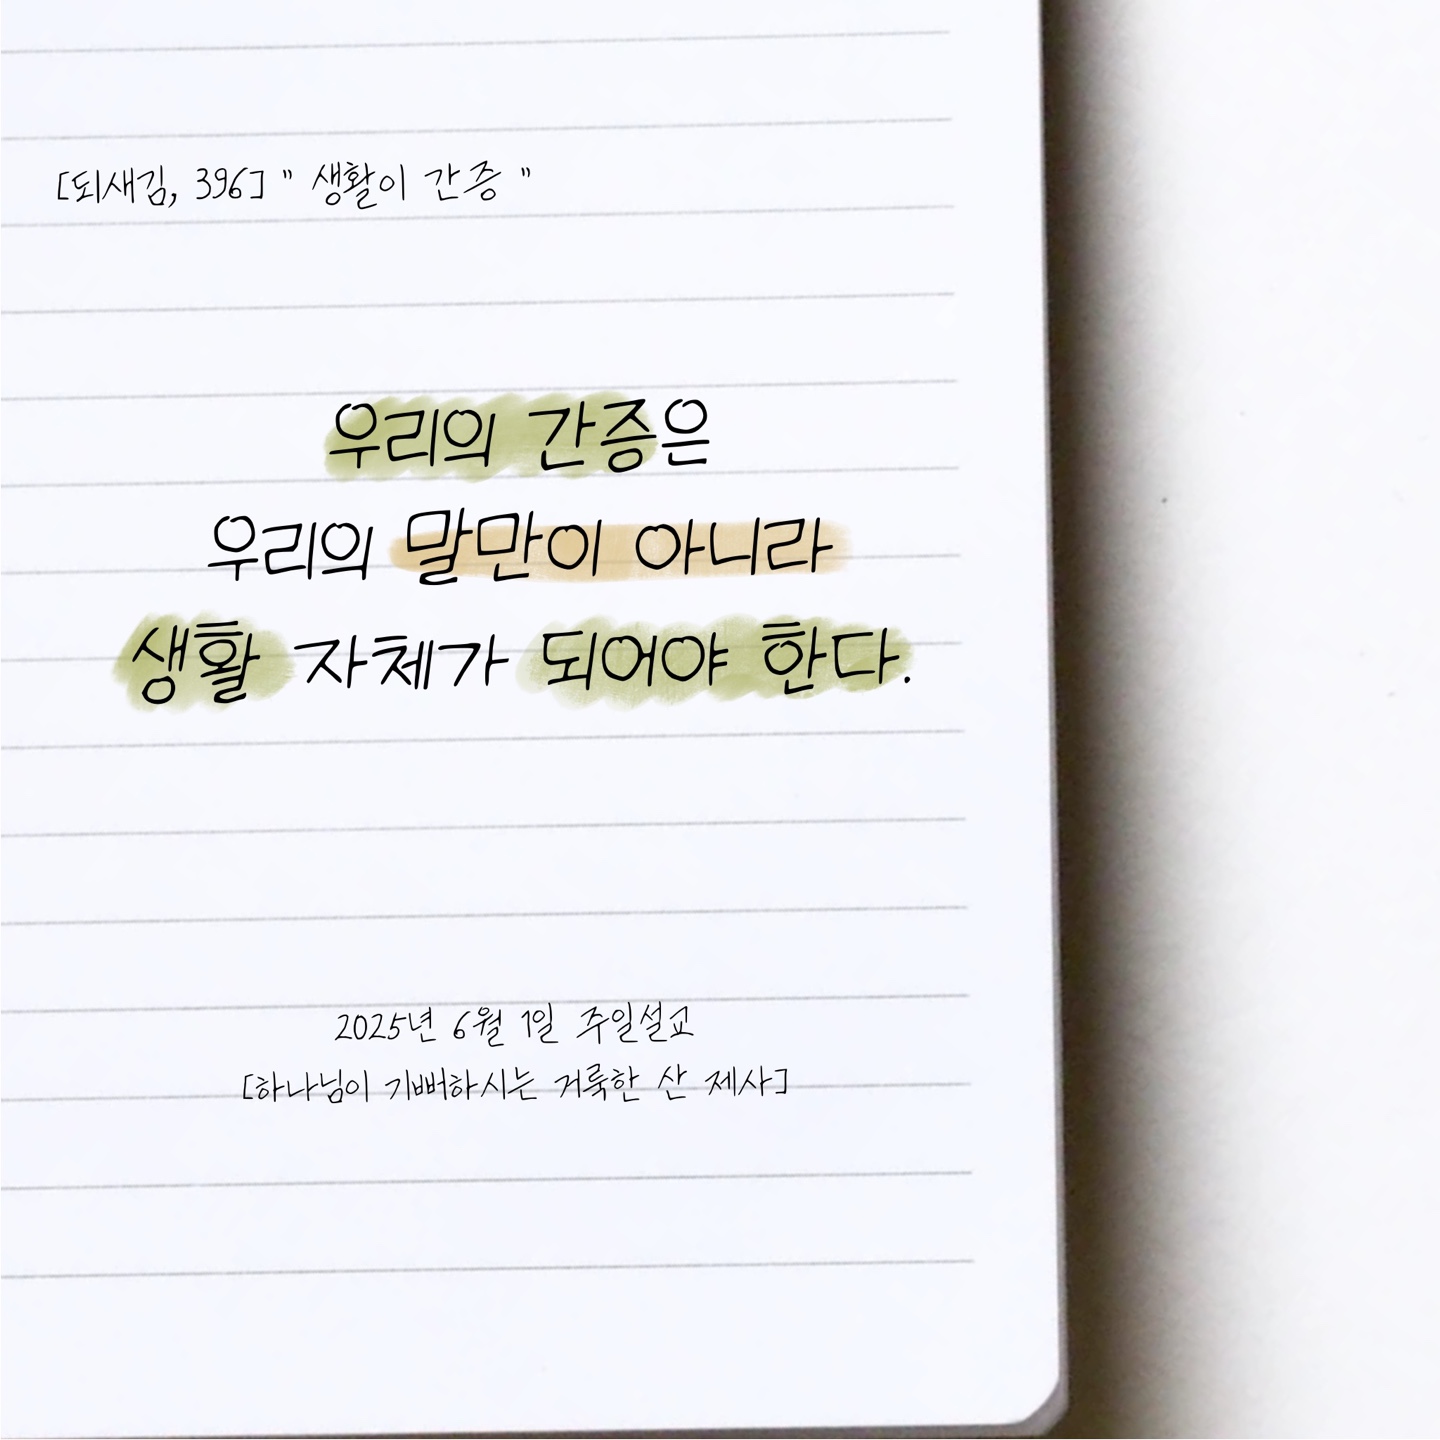 [되새김, 396] " 생활이 간증 "
우리의 간증은
우리의 말만이 아니라
생활 자체가 되어야 한다.
2025년 6월 1일 주일설교
[하나님이 기뻐하시는 거룩한 산 제사]